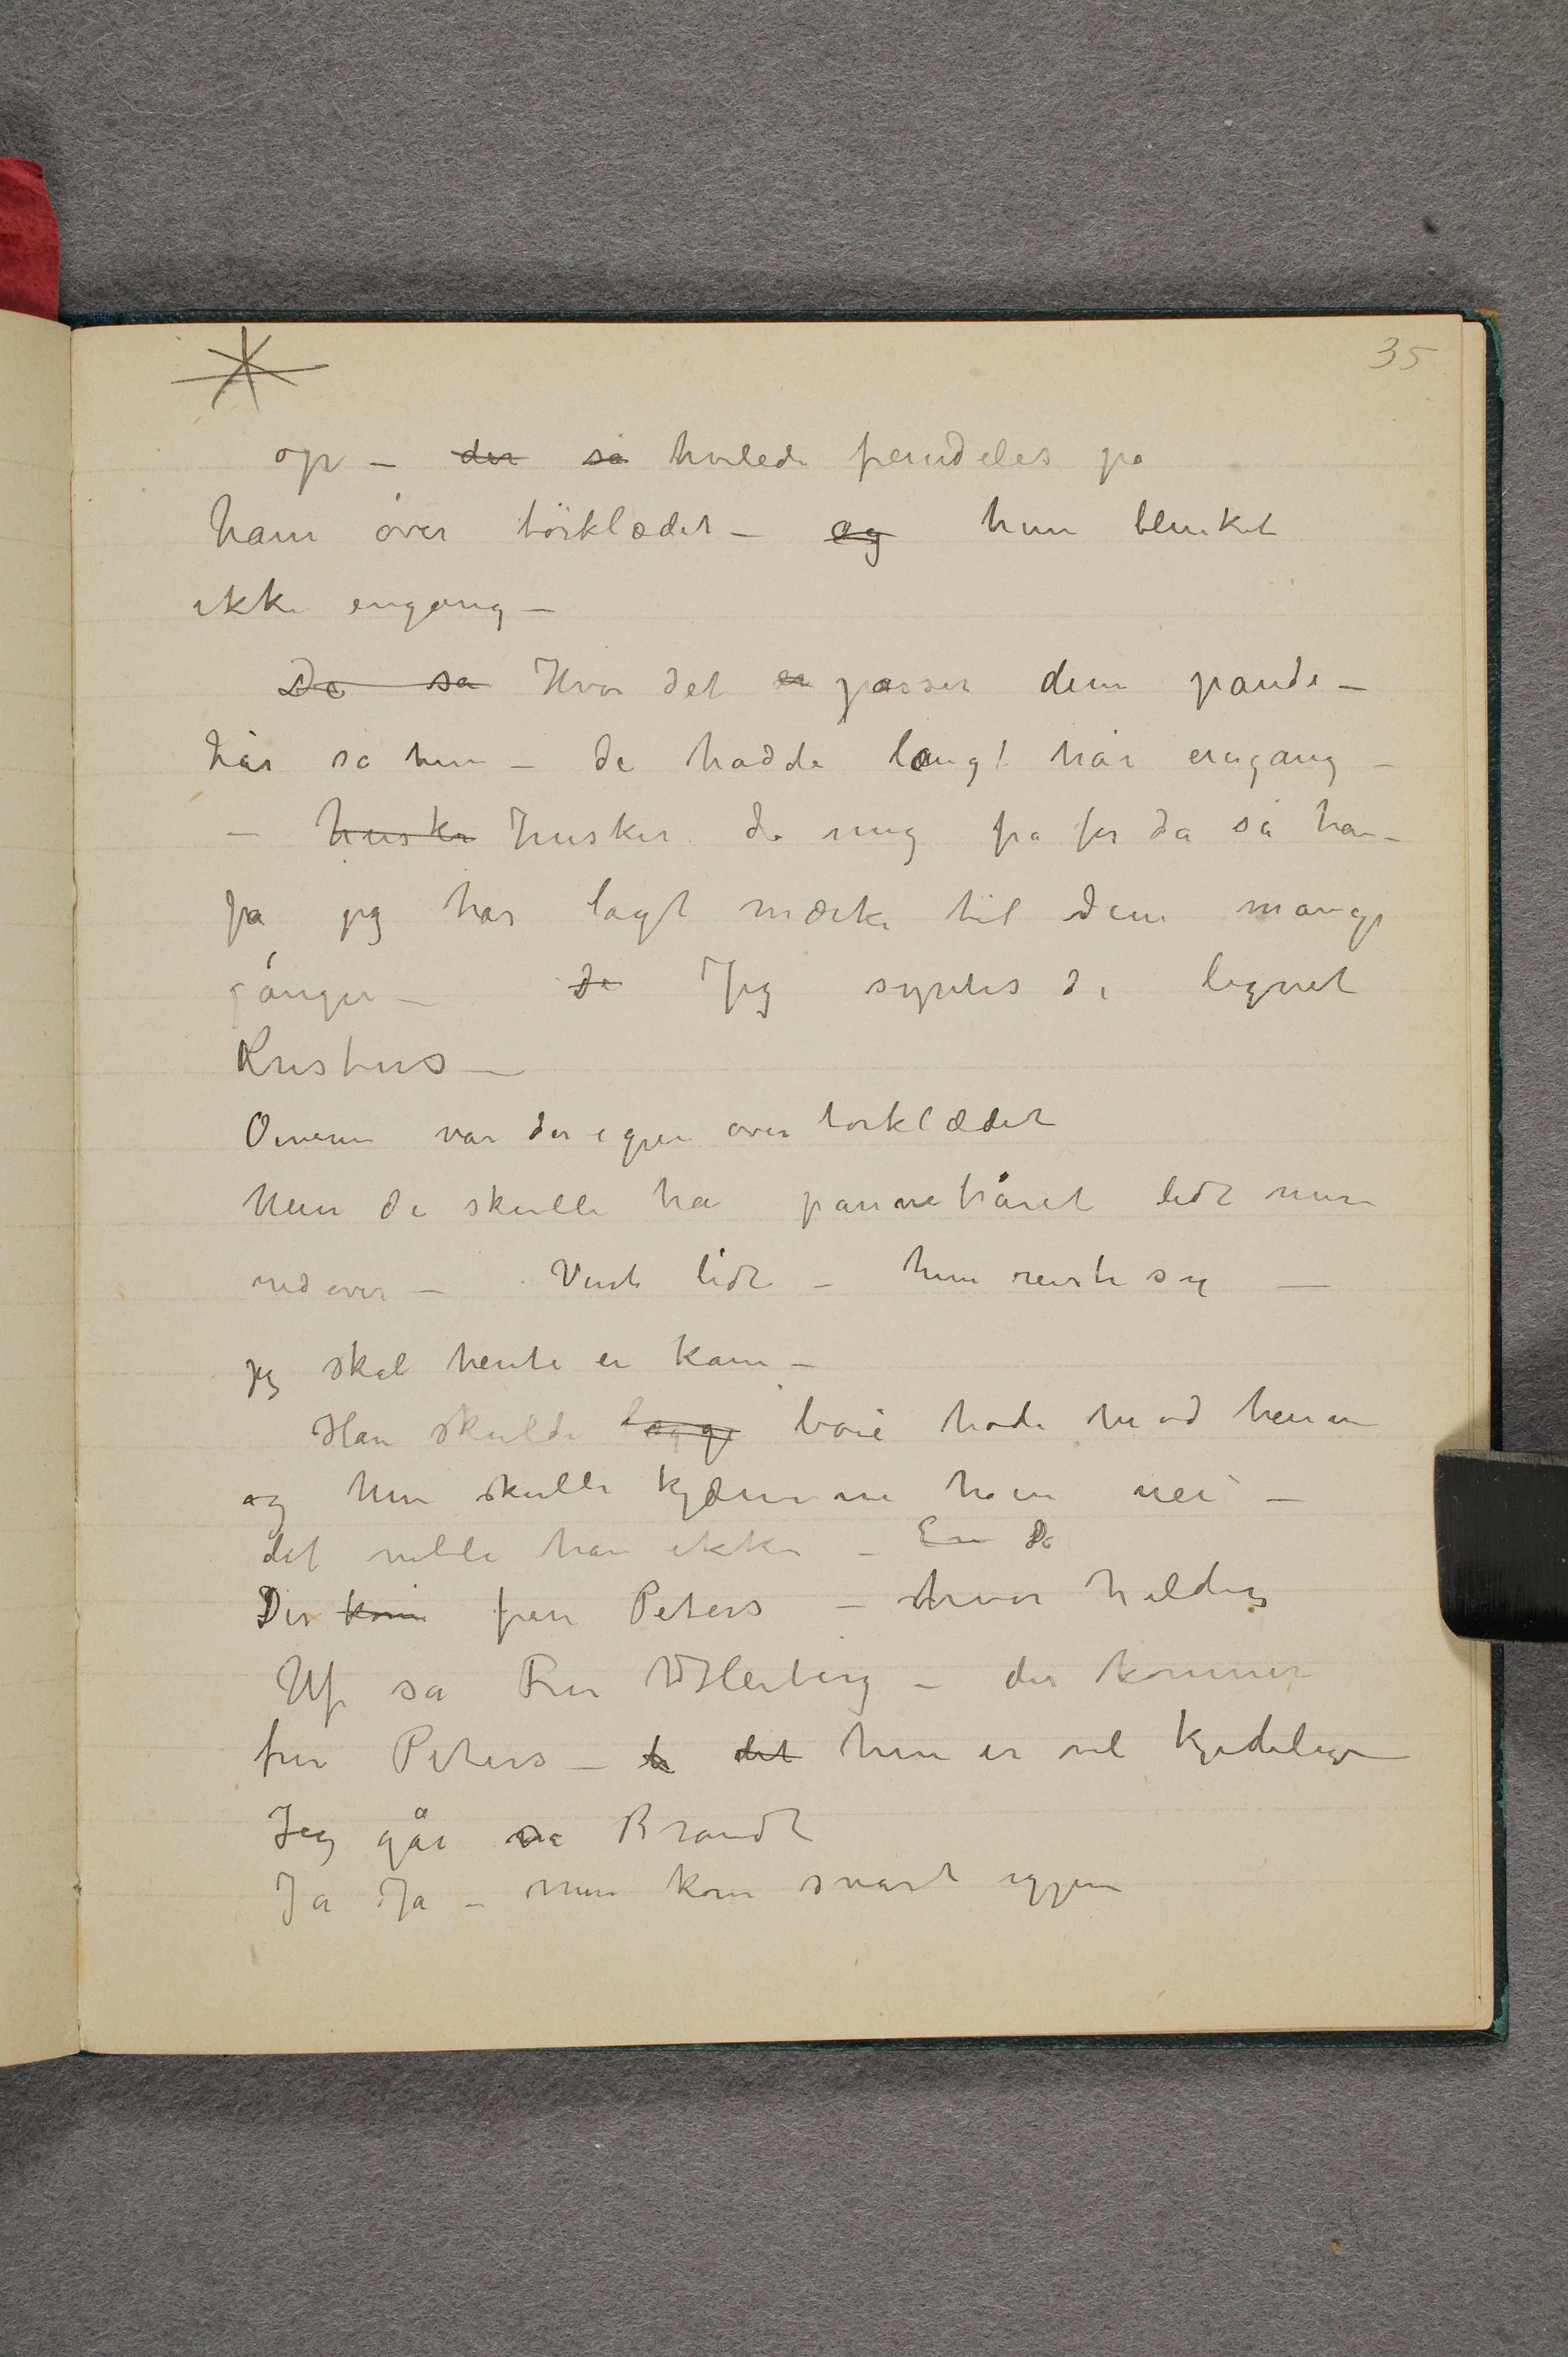 35
op – der så hvilede fremdeles på
ham over törklædet – og hun blunket
ikke engang –
De sa Hvor det er passer dem pande-
hår sa hun – de hadde langt hår engang –
– husker Husker de mig fra før da sa han –
Ja jeg har lagt mærke til dem mange
gånger – de Jeg syntes de lignet
Kristus –
Öinene var der igjen over törklædet
Men de skulle ha pannehåret lidt mere
nedover – Vent lidt – hun reiste sig –
jeg skal hente en kam –
Han skulde lægge böie hode mod hende
og hun skulle kjæmme ham nei –
det ville han ikke – En De
Der kom fru Peters – hvor heldig
Uf sa Fru Heiberg – der kommer
fru Peters – h det hun er vel kjedelig
Jeg går sa Brandt
Ja Ja – men kom svart igjen